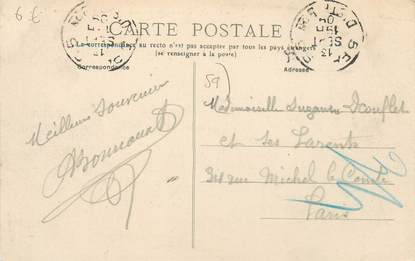 6 €
CARTE POSTALE
La correspondance au recto n'est pas acceptée par tous les pays étrangers
(se renseigner à la poste)
Correspondance
Adresse
59
Meilleurs souvenirs
Mademoiselle Suzanne
et ses Parents
rue Michel le Comte
Paris